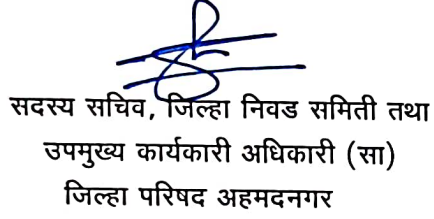 सदस्य सचिव, जिल्हा निवड समिती तथा
उपमुख्य कार्यकारी अधिकारी (सा)
जिल्हा परिषद अहमदनगर